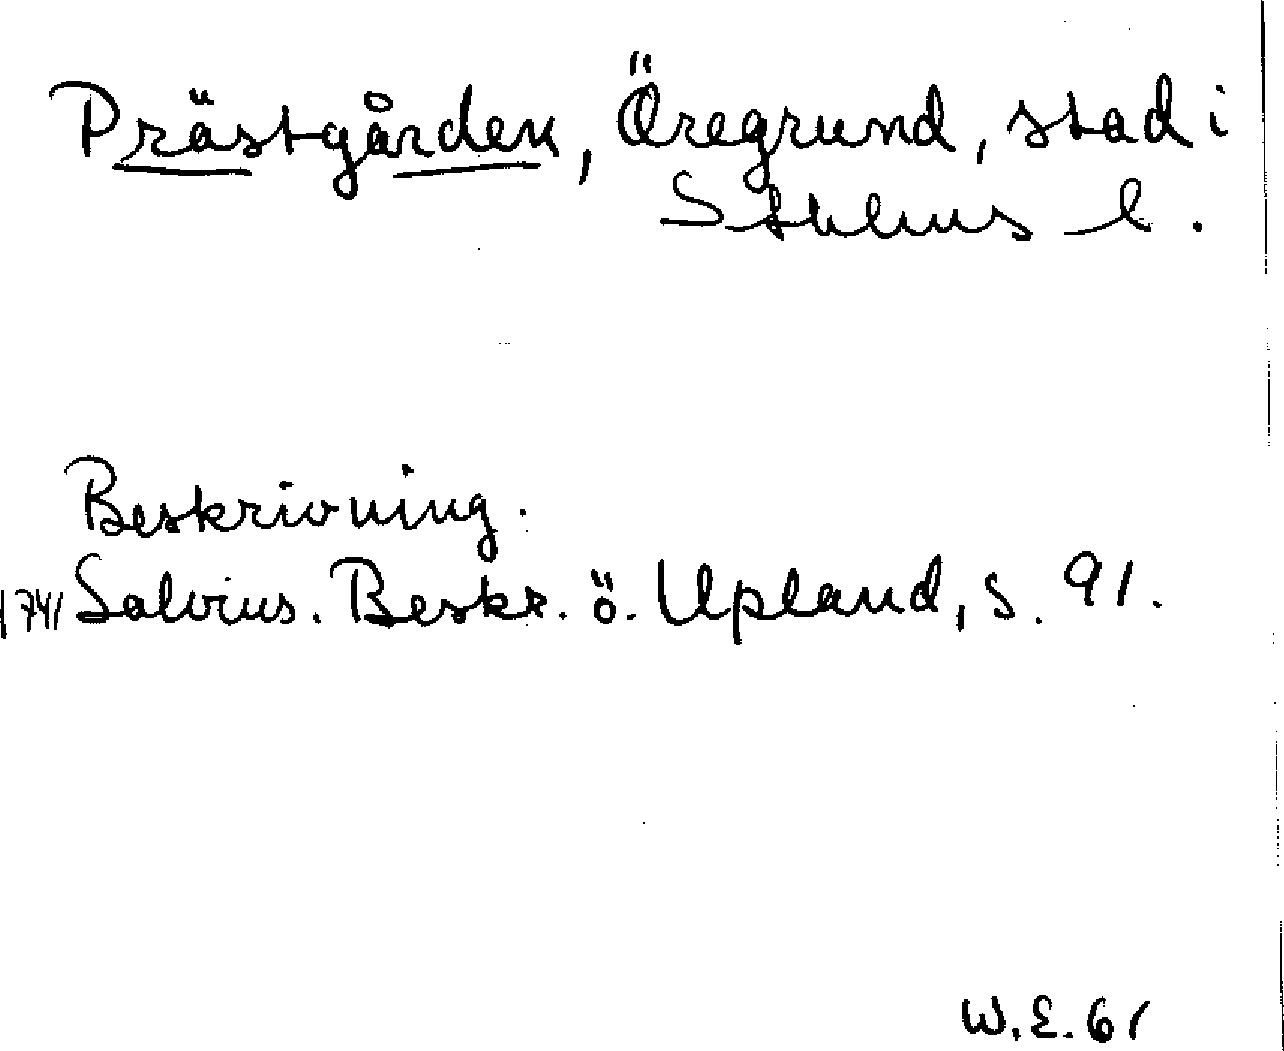 Prästgården, Öregrund, stad i
Sthlms l.
Beskrivning.
1741 Salvius. Beskr. ö. Upland, s. 91.
W.E. 61